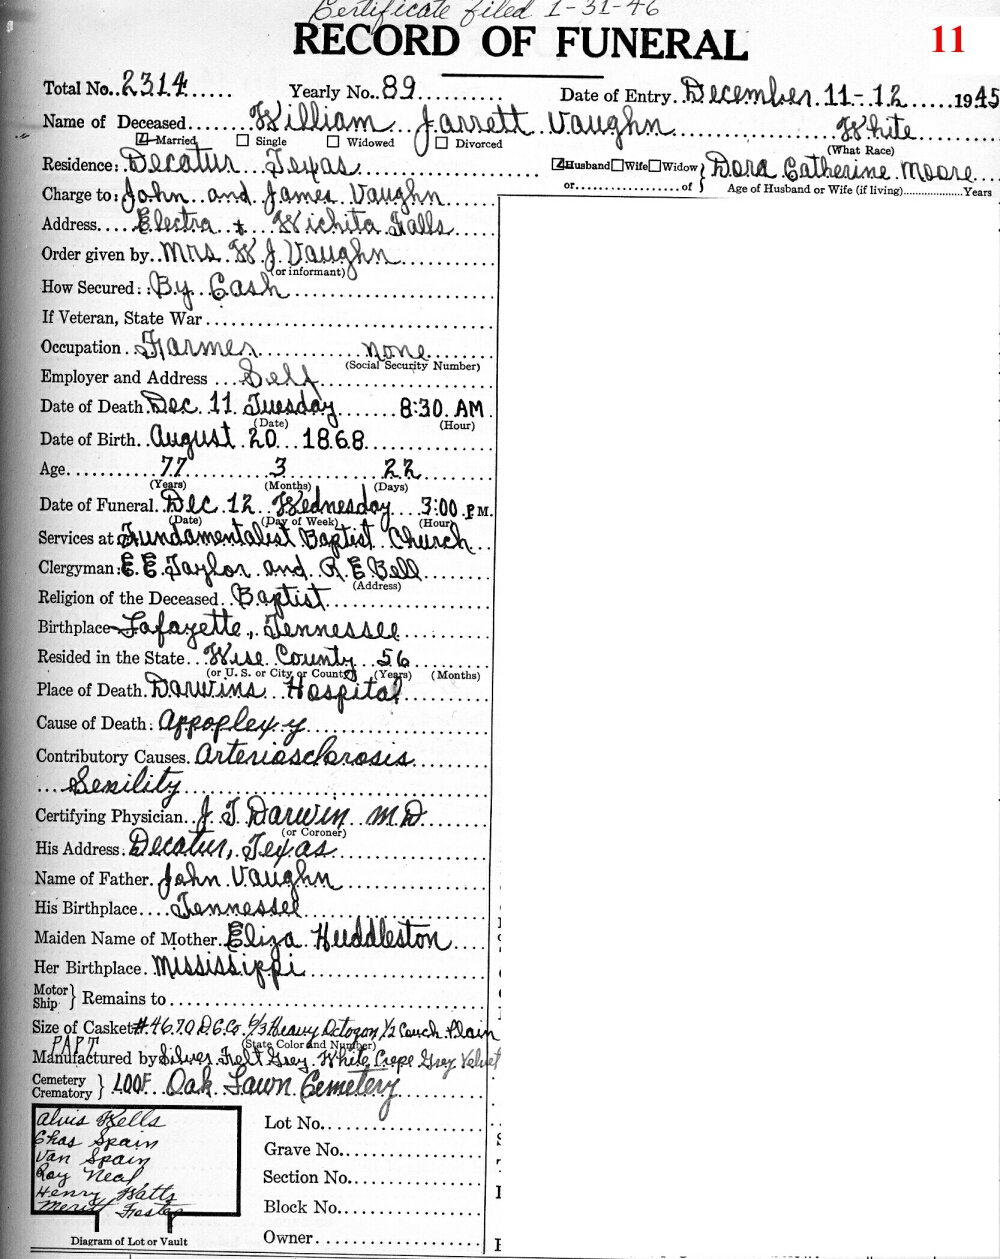 Certificate filed 1-31-46
RECORD OF FUNERAL
11
Total No. 2314 Yearly No. 89 Date of Entry December 11-12 1945
Name of Deceased William Jarrett Vaughn White
Married Single Widowed Divorced (What Race)
Residence: Decatur Texas Husband Wife Widow or of } Dora Catherine Moore
Age of Husband or Wife (if living) Years
Charge to: John and James Vaughn
Address Electra + Wichita Falls
Order given by Mrs. W. J. Vaughn
(or informant)
How Secured: By Cash
If Veteran, State War
Occupation Farmer none
(Social Security Number)
Employer and Address Self
Date of Death Dec 11 Tuesday 8:30 AM
(Date) (Hour)
Date of Birth August 20 1868
Age 77 3 22
(Years) (Months) (Days)
Date of Funeral Dec 12 Wednesday 3:00 PM.
(Date) (Day of Week) (Hour)
Services at Fundamentalist Baptist Church
Clergyman: E. E. Taylor and R. E. Bell
(Address)
Religion of the Deceased Baptist
Birthplace Lafayette, Tennessee
Resided in the State Wise County 56
(or U. S. or City or County) (Years) (Months)
Place of Death Darwins Hospital
Cause of Death: Appoplexy
Contributory Causes Arteriosclorosis
Senility
Certifying Physician J. T. Darwin M D
(or Coroner)
His Address: Decatur, Texas
Name of Father John Vaughn
His Birthplace Tennessee
Maiden Name of Mother Eliza Huddleston
Her Birthplace Mississippi
Motor Ship } Remains to
Size of Casket #4670 D.G.Co. 6/3 Heavy Octogon 1/2 Couch Plain
(State Color and Number)
Manufactured by Silver Felt Grey White Crepe Grey Velvet
Cemetery Crematory } IOOF Oak Lawn Cemetery
Alvis Wells
Chas Spain
Van Spain
Roy Neal
Henry Watts
Meritt
Lot No.
Grave No.
Section No.
Block No.
Owner
Diagram of Lot or Vault